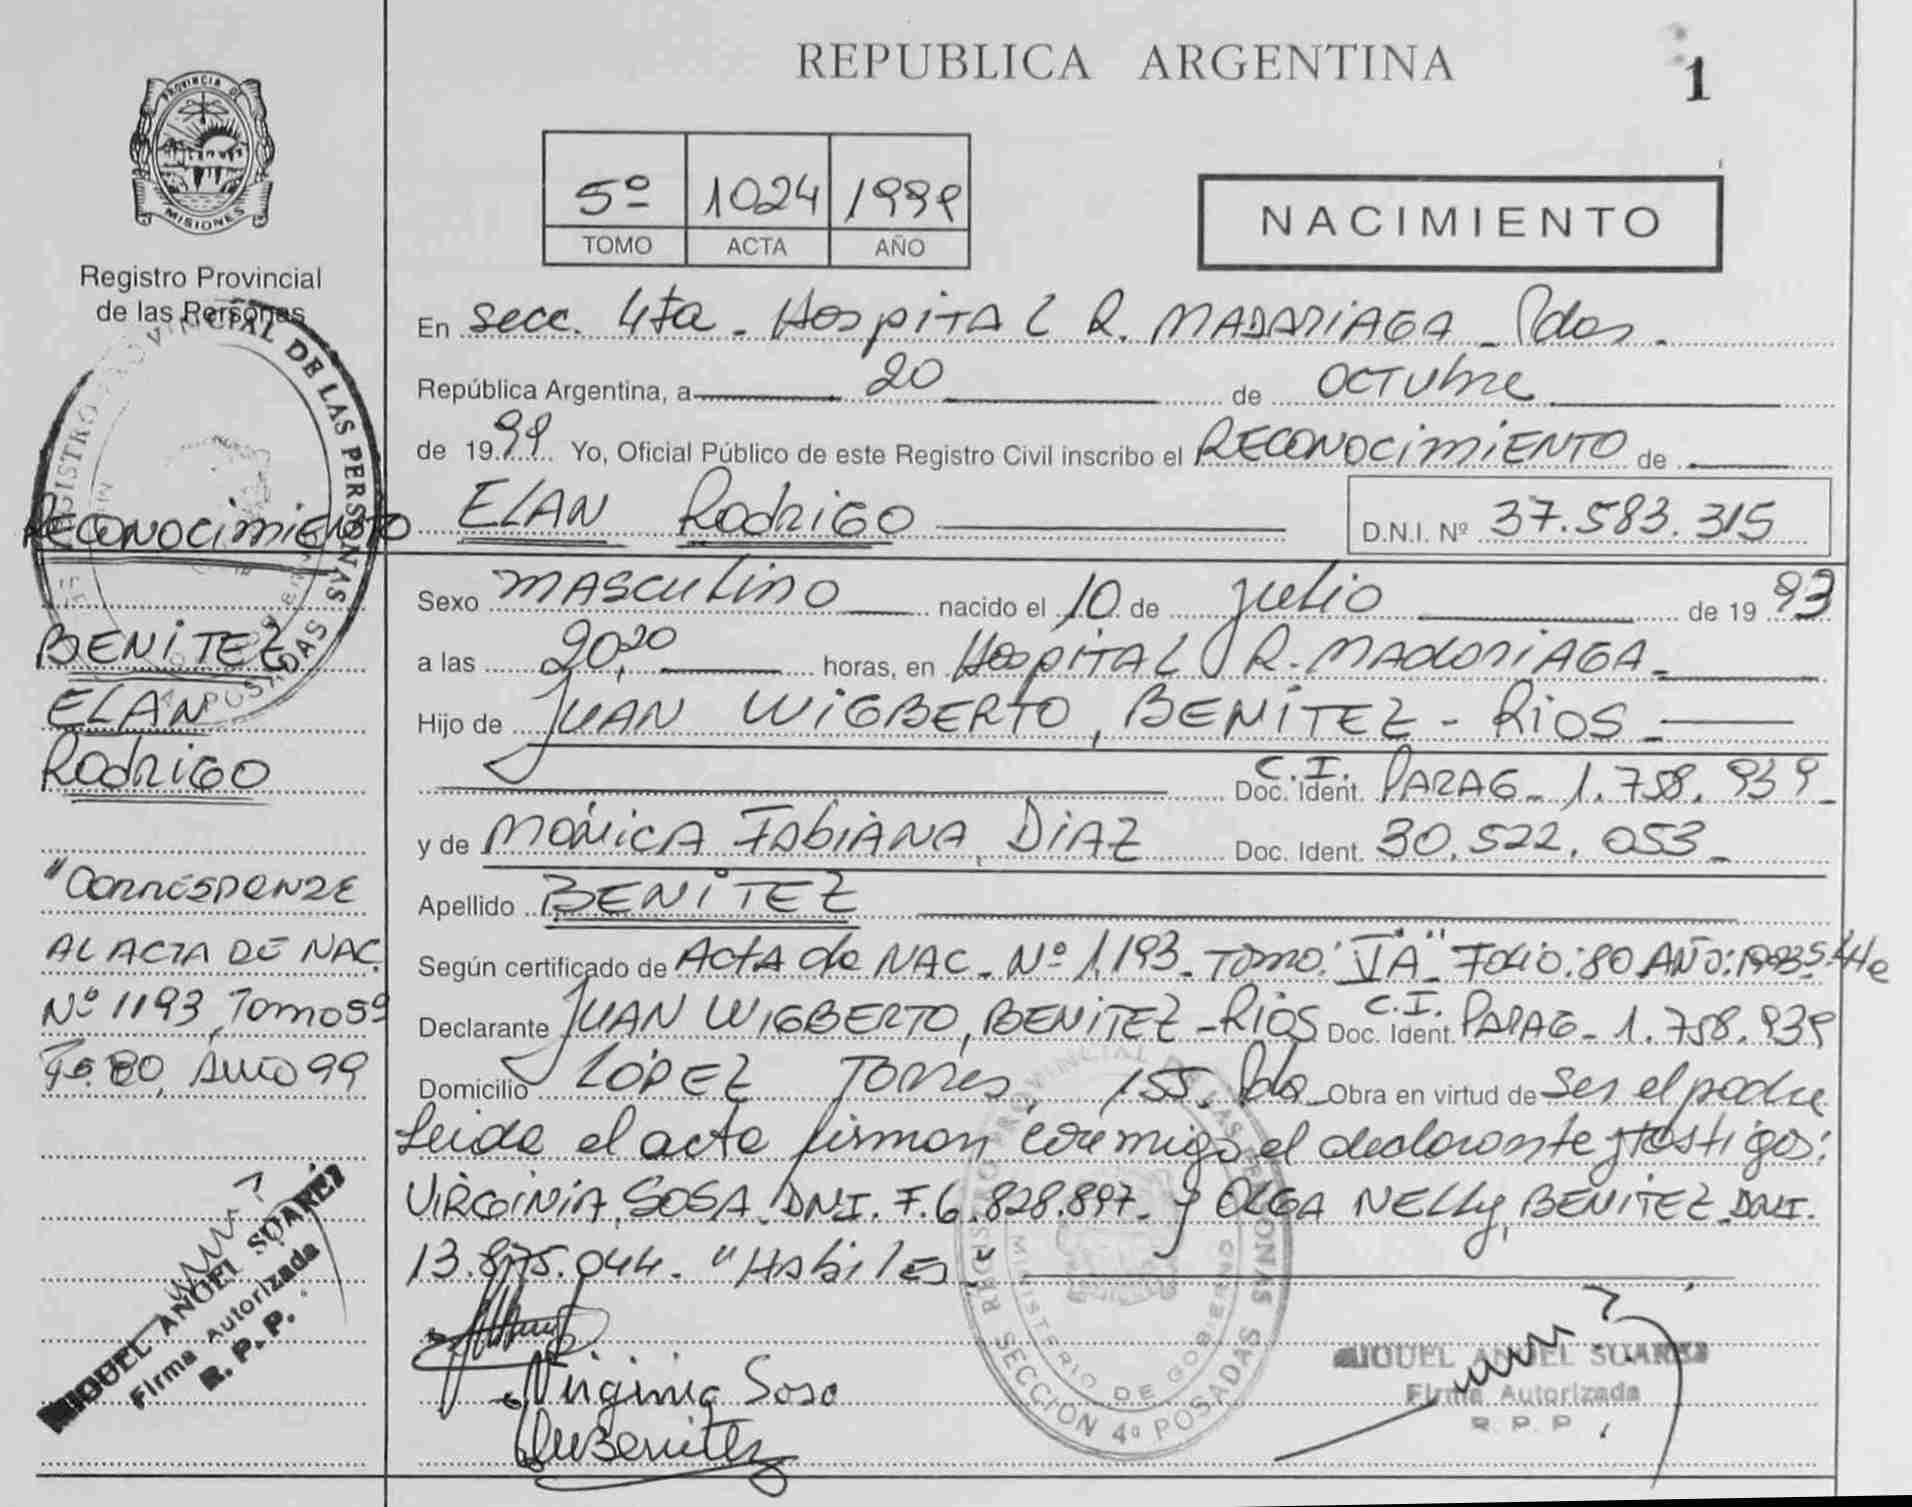 REPUBLICA ARGENTINA
1
PROVINCIA DE
MISIONES
Registro Provincial
de las Personas
5º 1024 1999
TOMO ACTA AÑO
NACIMIENTO
En secc. 4ta - Hospital R. MADARIAGA - Pdas.
República Argentina, a 20 de octubre
de 1999 Yo, Oficial Público de este Registro Civil inscribo el RECONOCIMIENTO de
ELAN Rodrigo D.N.I. Nº 37.583.315
Sexo masculino nacido el 10 de julio de 1993
a las 20,20 horas, en Hospital R. Madariaga -
Hijo de JUAN WIGBERTO, BENITEZ - RIOS -
C.I.
Doc. Ident. PARAG - 1.758.939 -
y de MÓNICA FABIANA, DIAZ Doc. Ident. 30.522.053 -
Apellido BENITEZ
Según certificado de Acta de NAC - Nº 1.193 - Tomo: "VA" Folio: 80 AÑO: 1993
C.I.
Declarante JUAN WIGBERTO, BENITEZ - RIOS Doc. Ident. PARAG - 1.758.939
Domicilio LÓPEZ Torres, 155, Pda Obra en virtud de ser el padre
Leida el acta firman conmigo el declarante y testigos:
VIRGINIA, SOSA, DNI. F. 6.828.897 - y OLGA NELLY, BENITEZ - DNI.
13.875.044 - "Habiles"
Virginia Sosa
Benitez
MIGUEL ANGEL SUAREZ
Firma Autorizada
R. P. P.
REGISTRO PROVINCIAL DE LAS PERSONAS
MINISTERIO DE GOBIERNO
SECCION 4º POSADAS
REGISTRO PROVINCIAL DE LAS PERSONAS
POSADAS
RECONOCIMIENTO
BENITEZ
ELAN
Rodrigo
"Corresponde
AL ACTA DE NAC.
Nº 1193, Tomo 5º
Fº. 80, Año 99
MIGUEL ANGEL SUAREZ
Firma Autorizada
R. P. P.